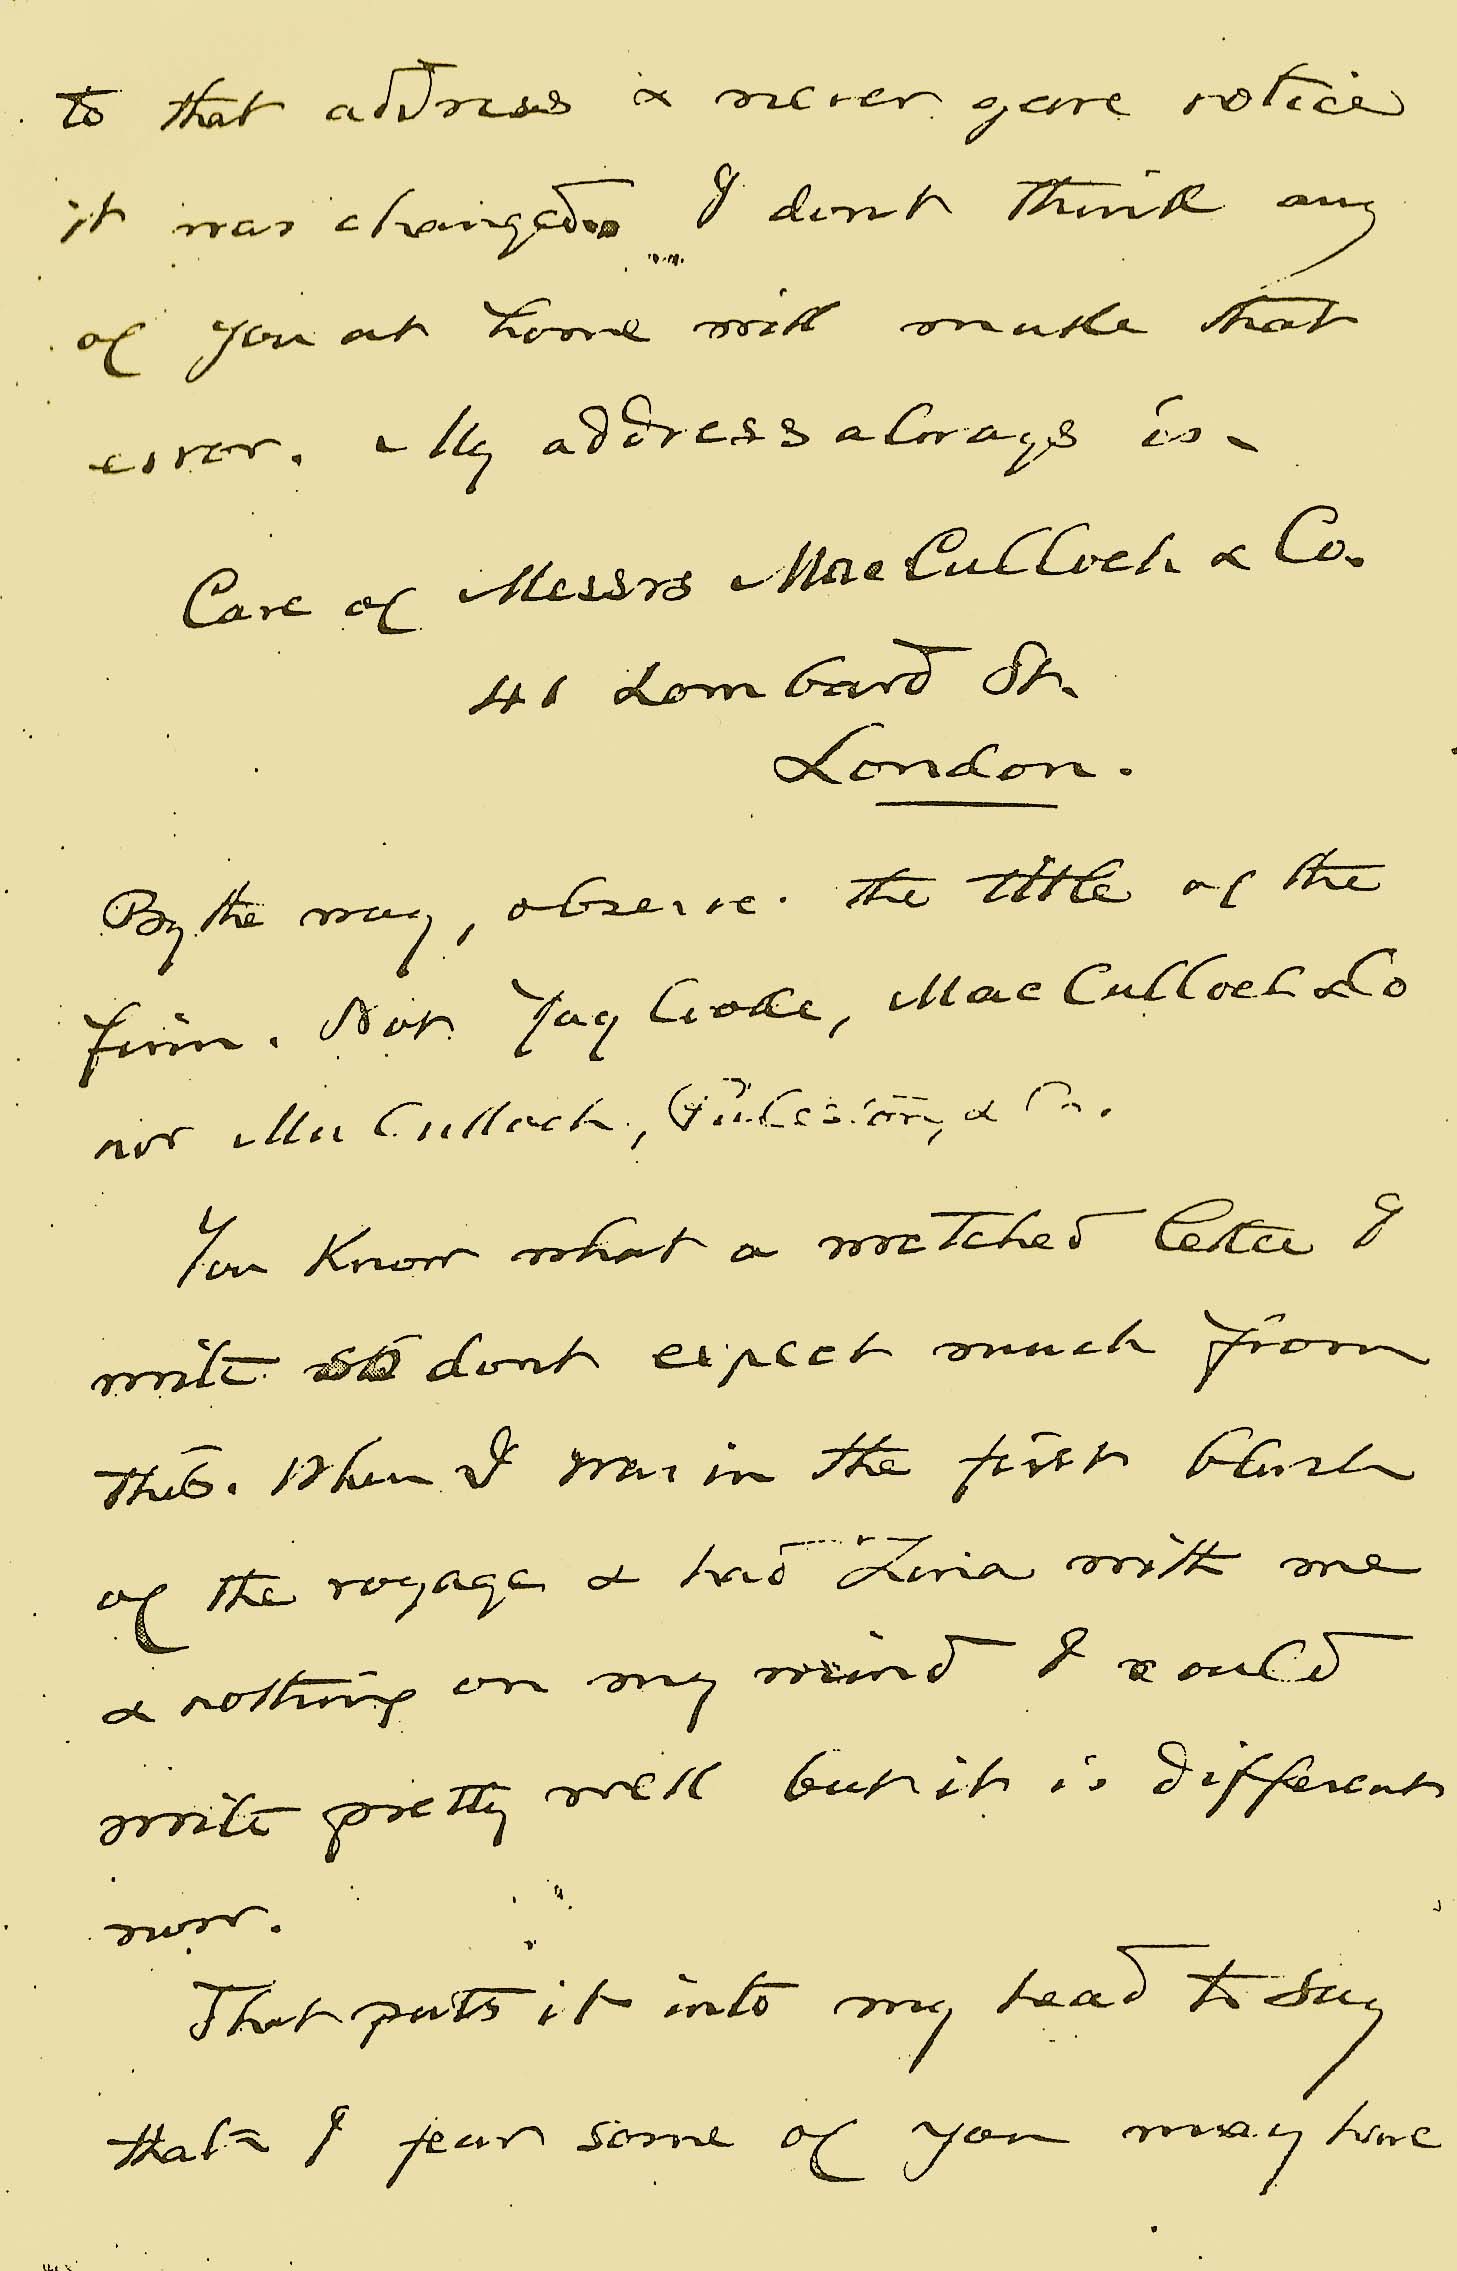 to that address & never gave notice
it was changed. I dont think any
of you at home will make that
error. My address always is -
Care of Messrs MacCulloch & Co.
41 Lombard St.
London.
By the way, observe. the title of the
firm. Not Jay Cooke, MacCulloch & Co
nor MacCulloch, Puleston, & Co.
You know what a wretched letter I
write so dont expect much from
this. When I was in the first blush
of the voyage & had with me
& nothing on my mind I could
write pretty well but it is different
now.
That puts it into my head to say
that I fear some of you may have